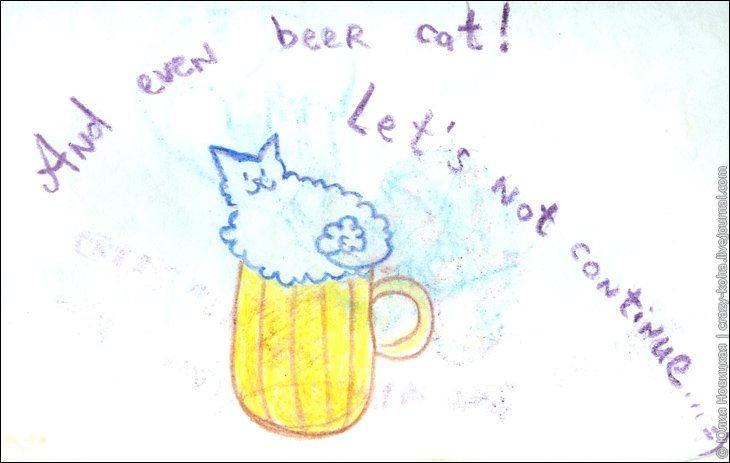 And even beer cat!
Let's not continue...
© Юлия Новицкая | crazy-koha.livejournal.com